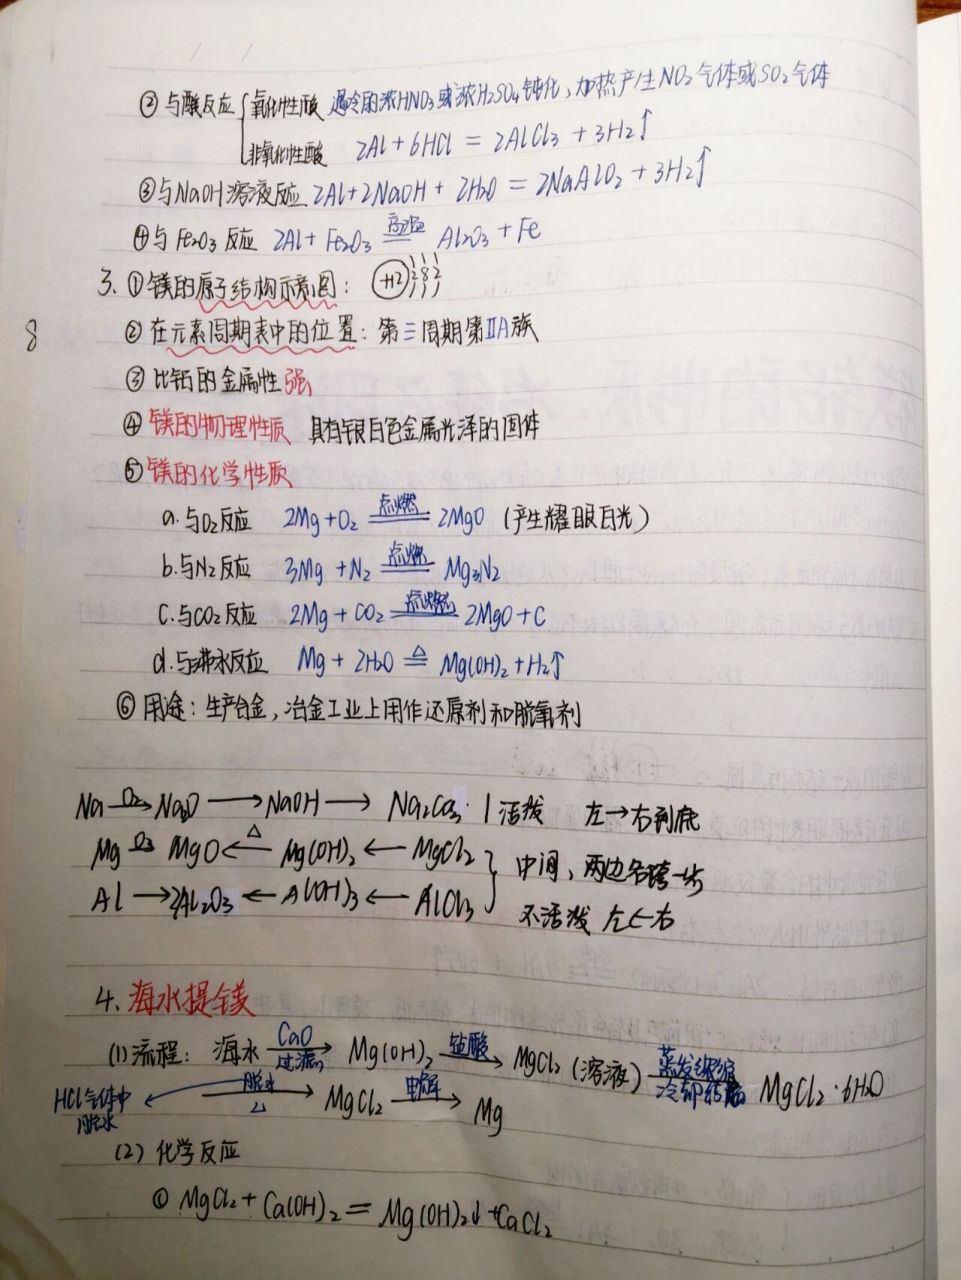 ② 与酸反应 { 氧化性酸 遇冷的浓HNO₃或浓H₂SO₄钝化，加热产生NO₂气体或SO₂气体
非氧化性酸 2Al + 6HCl = 2AlCl₃ + 3H₂↑
③ 与NaOH溶液反应 2Al+2NaOH + 2H₂O = 2NaAlO₂ + 3H₂↑
④ 与Fe₂O₃反应 2Al + Fe₂O₃ 高温 Al₂O₃ + Fe
3. ① 镁的原子结构示意图： +12 2 8 2
② 在元素周期表中的位置：第三周期第ⅡA族
8
③ 比铝的金属性强
④ 镁的物理性质 具有银白色金属光泽的固体
⑤ 镁的化学性质
a. 与O₂反应 2Mg+O₂ 点燃 2MgO (产生耀眼白光)
b. 与N₂反应 3Mg + N₂ 点燃 Mg₃N₂
C. 与CO₂反应 2Mg + CO₂ 点燃 2MgO + C
d. 与沸水反应 Mg + 2H₂O △ Mg(OH)₂ + H₂↑
⑥ 用途：生产合金，冶金工业上用作还原剂和脱氧剂
Na O₂→ Na₂O → NaOH → Na₂CO₃ 活泼 左→右到底
Mg O₂→ MgO ←△ Mg(OH)₂ ← MgCl₂ 中间，两边各跨一步
Al → Al₂O₃ ← Al(OH)₃ ← AlCl₃ 不活泼 左←右
4. 海水提镁
(1) 流程： 海水 CaO 过滤→ Mg(OH)₂ 盐酸→ MgCl₂ (溶液) 蒸发浓缩 冷却结晶 MgCl₂·6H₂O
HCl气体中脱水 ← 脱水 △→ MgCl₂ 电解→ Mg
(2) 化学反应
① MgCl₂ + Ca(OH)₂ = Mg(OH)₂↓ + CaCl₂